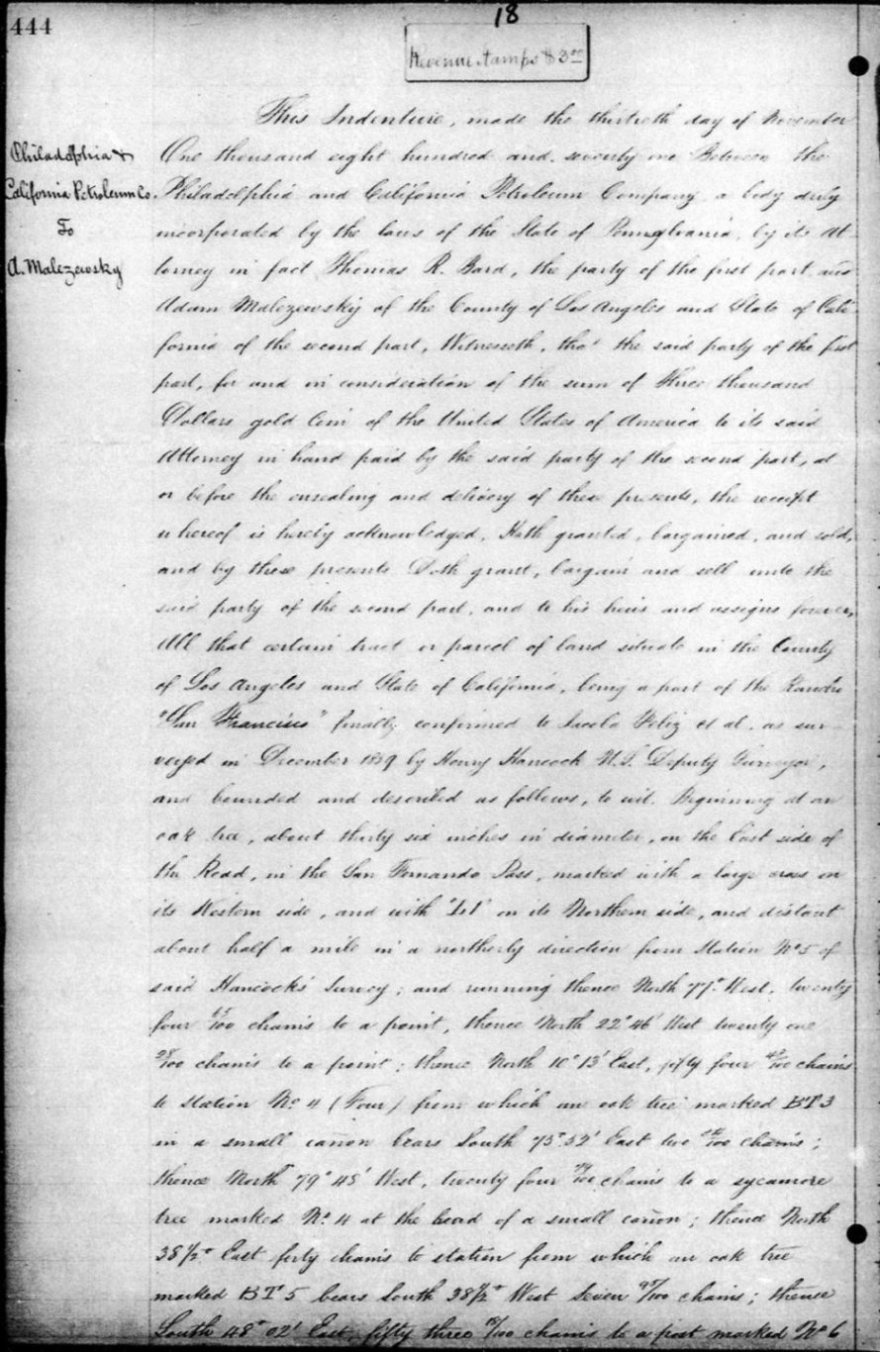 444
18
Revenue Stamps $3.00
Philadelphia &
California Petroleum Co.
To
A. Malezewsky
This Indenture, made the thirtieth day of November
One thousand eight hundred and seventy one Between the
Philadelphia and California Petroleum Company a body duly
incorporated by the laws of the State of Pennsylvania, by its at
torney in fact Thomas R. Bard, the party of the first part and
Adam Malezewsky of the County of Los Angeles and State of Cali
fornia of the second part, Witnesseth, that the said party of the first
part, for and in consideration of the sum of Three thousand
Dollars gold Coin of the United States of America to its said
Attorney in hand paid by the said party of the second part, at
or before the ensealing and delivery of these presents, the receipt
whereof is hereby acknowledged, Hath granted, bargained, and sold,
and by these presents Doth grant, bargain and sell unto the
said party of the second part, and to his heirs and assigns forever,
All that certain tract or parcel of land situate in the County
of Los Angeles and State of California, being a part of the Rancho
"San Francisco" finally confirmed to Jacoba Feliz et al. as sur
veyed in December 1859 by Henry Hancock U.S. Deputy Surveyor,
and bounded and described as follows, to wit. Beginning at an
oak tree, about thirty six inches in diameter, on the East side of
the Road, in the San Fernando Pass, marked with a large cross on
its Western side, and with on its Northern side, and distant
about half a mile in a northerly direction from Station No 5 of
said Hancock's Survey; and running thence North 77° West, twenty
four /100 chains to a point, thence North 22° 46' West twenty one
/100 chains to a point; thence North 10° 13' East, fifty four /100 chains
to station No 4 (Four) from which an oak tree marked BT3
in a small cañon bears South 75° 52' East two /100 chains;
thence North 79° 45' West, twenty four /100 chains to a sycamore
tree marked No 4 at the head of a small cañon; thence North
38 1/2° East forty chains to station from which an oak tree
marked BT5 bears South 38 1/2° West Seven /100 chains; thence
South 48° 02' East, fifty three /100 chains to a post marked No 6